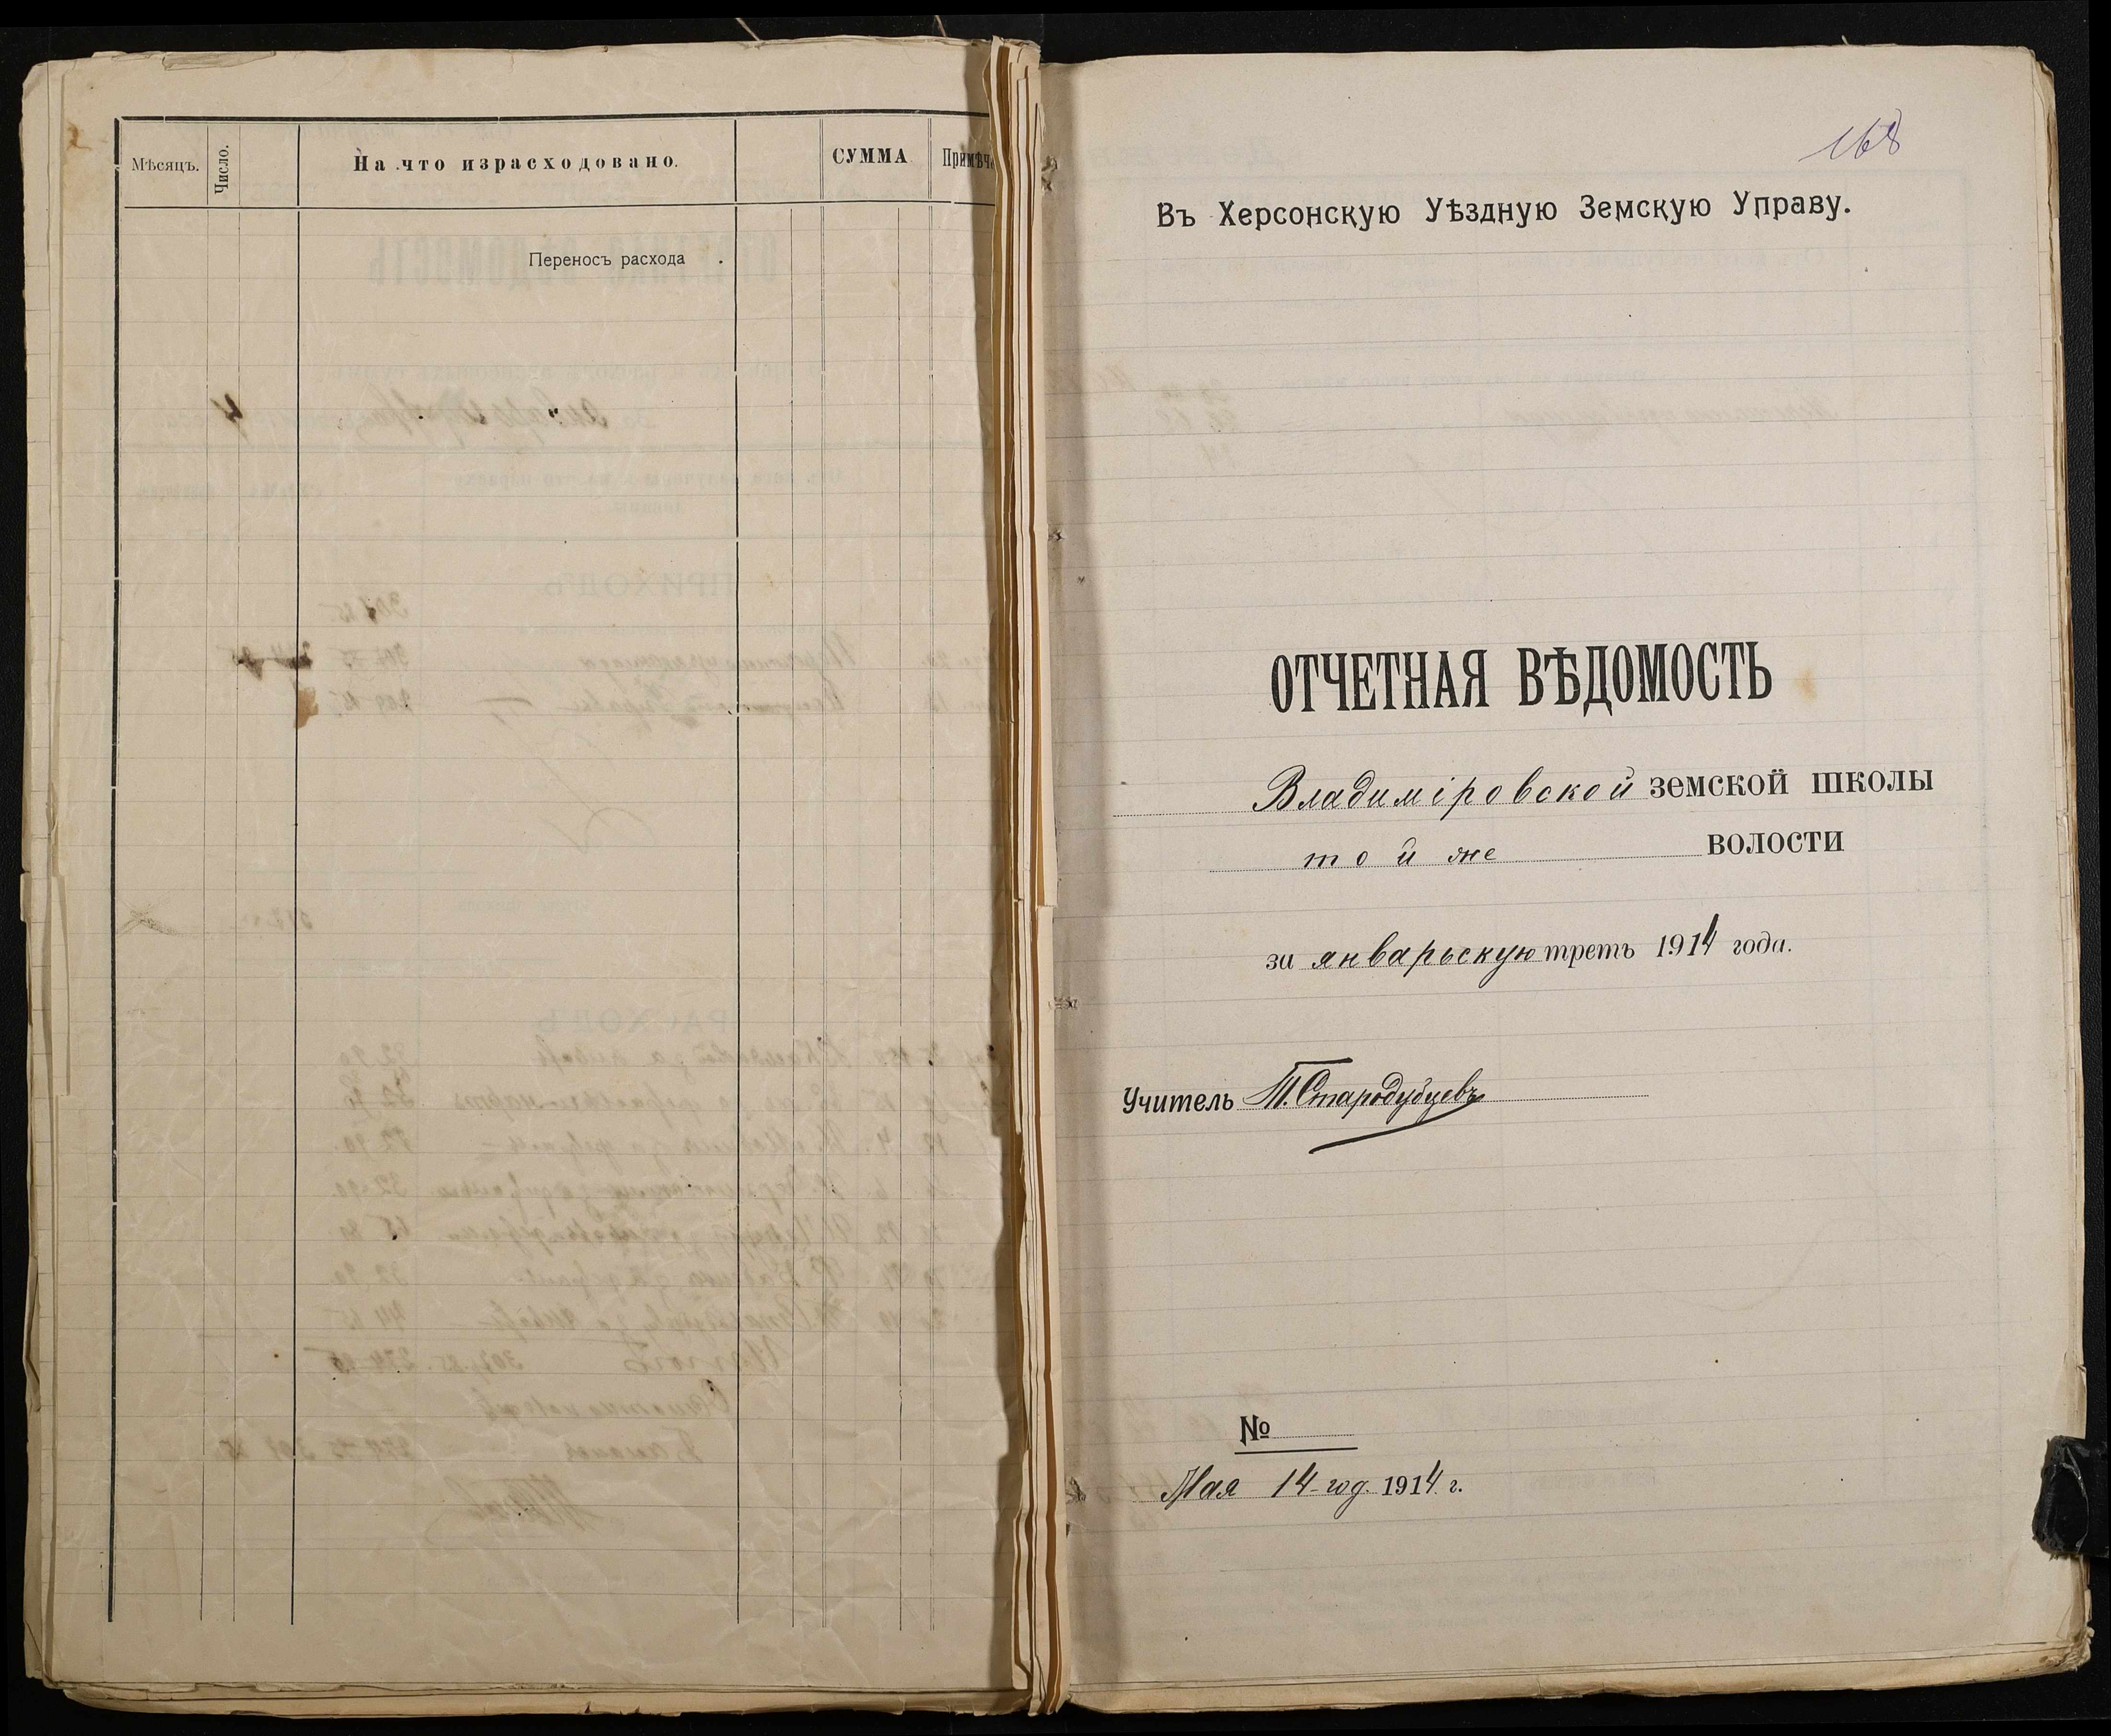 Мѣсяцъ.
Число.
На что израсходовано.
СУММА
Примѣча
Переносъ расхода .
168
Въ Херсонскую Уѣздную Земскую Управу.
ОТЧЕТНАЯ ВѢДОМОСТЬ
Владиміровской земской школы
той же волости
за январьскую треть 1914 года.
Учитель Т. Стародубцевъ
№
Мая 14 год. 1914 г.